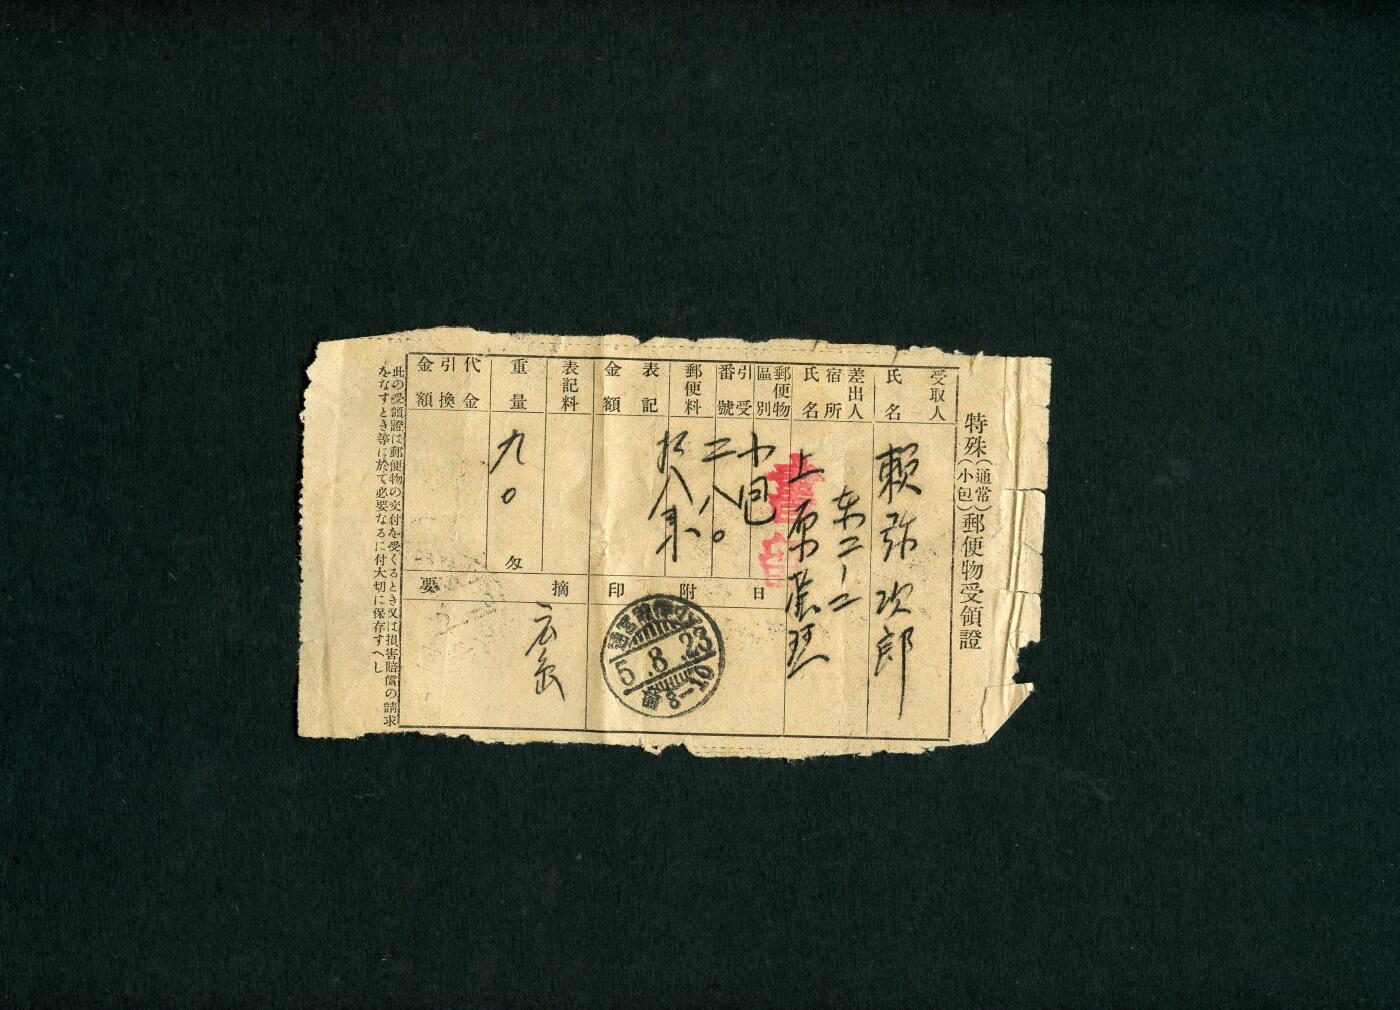 特殊(通常小包)郵便物受領證
受取人氏名
賴弥次郎
差出人宿所氏名
上原
郵便物區別
小包
書留
引受番號
二八〇
郵便料
表記金額
表記料
重量
九〇匁
代金引換金額
日附印
5.8.23
8-10
摘要
此の受領證は郵便物の交付を受くるとき又は損害賠償の請求
をなすとき等に於て必要なるに付大切に保存すへし